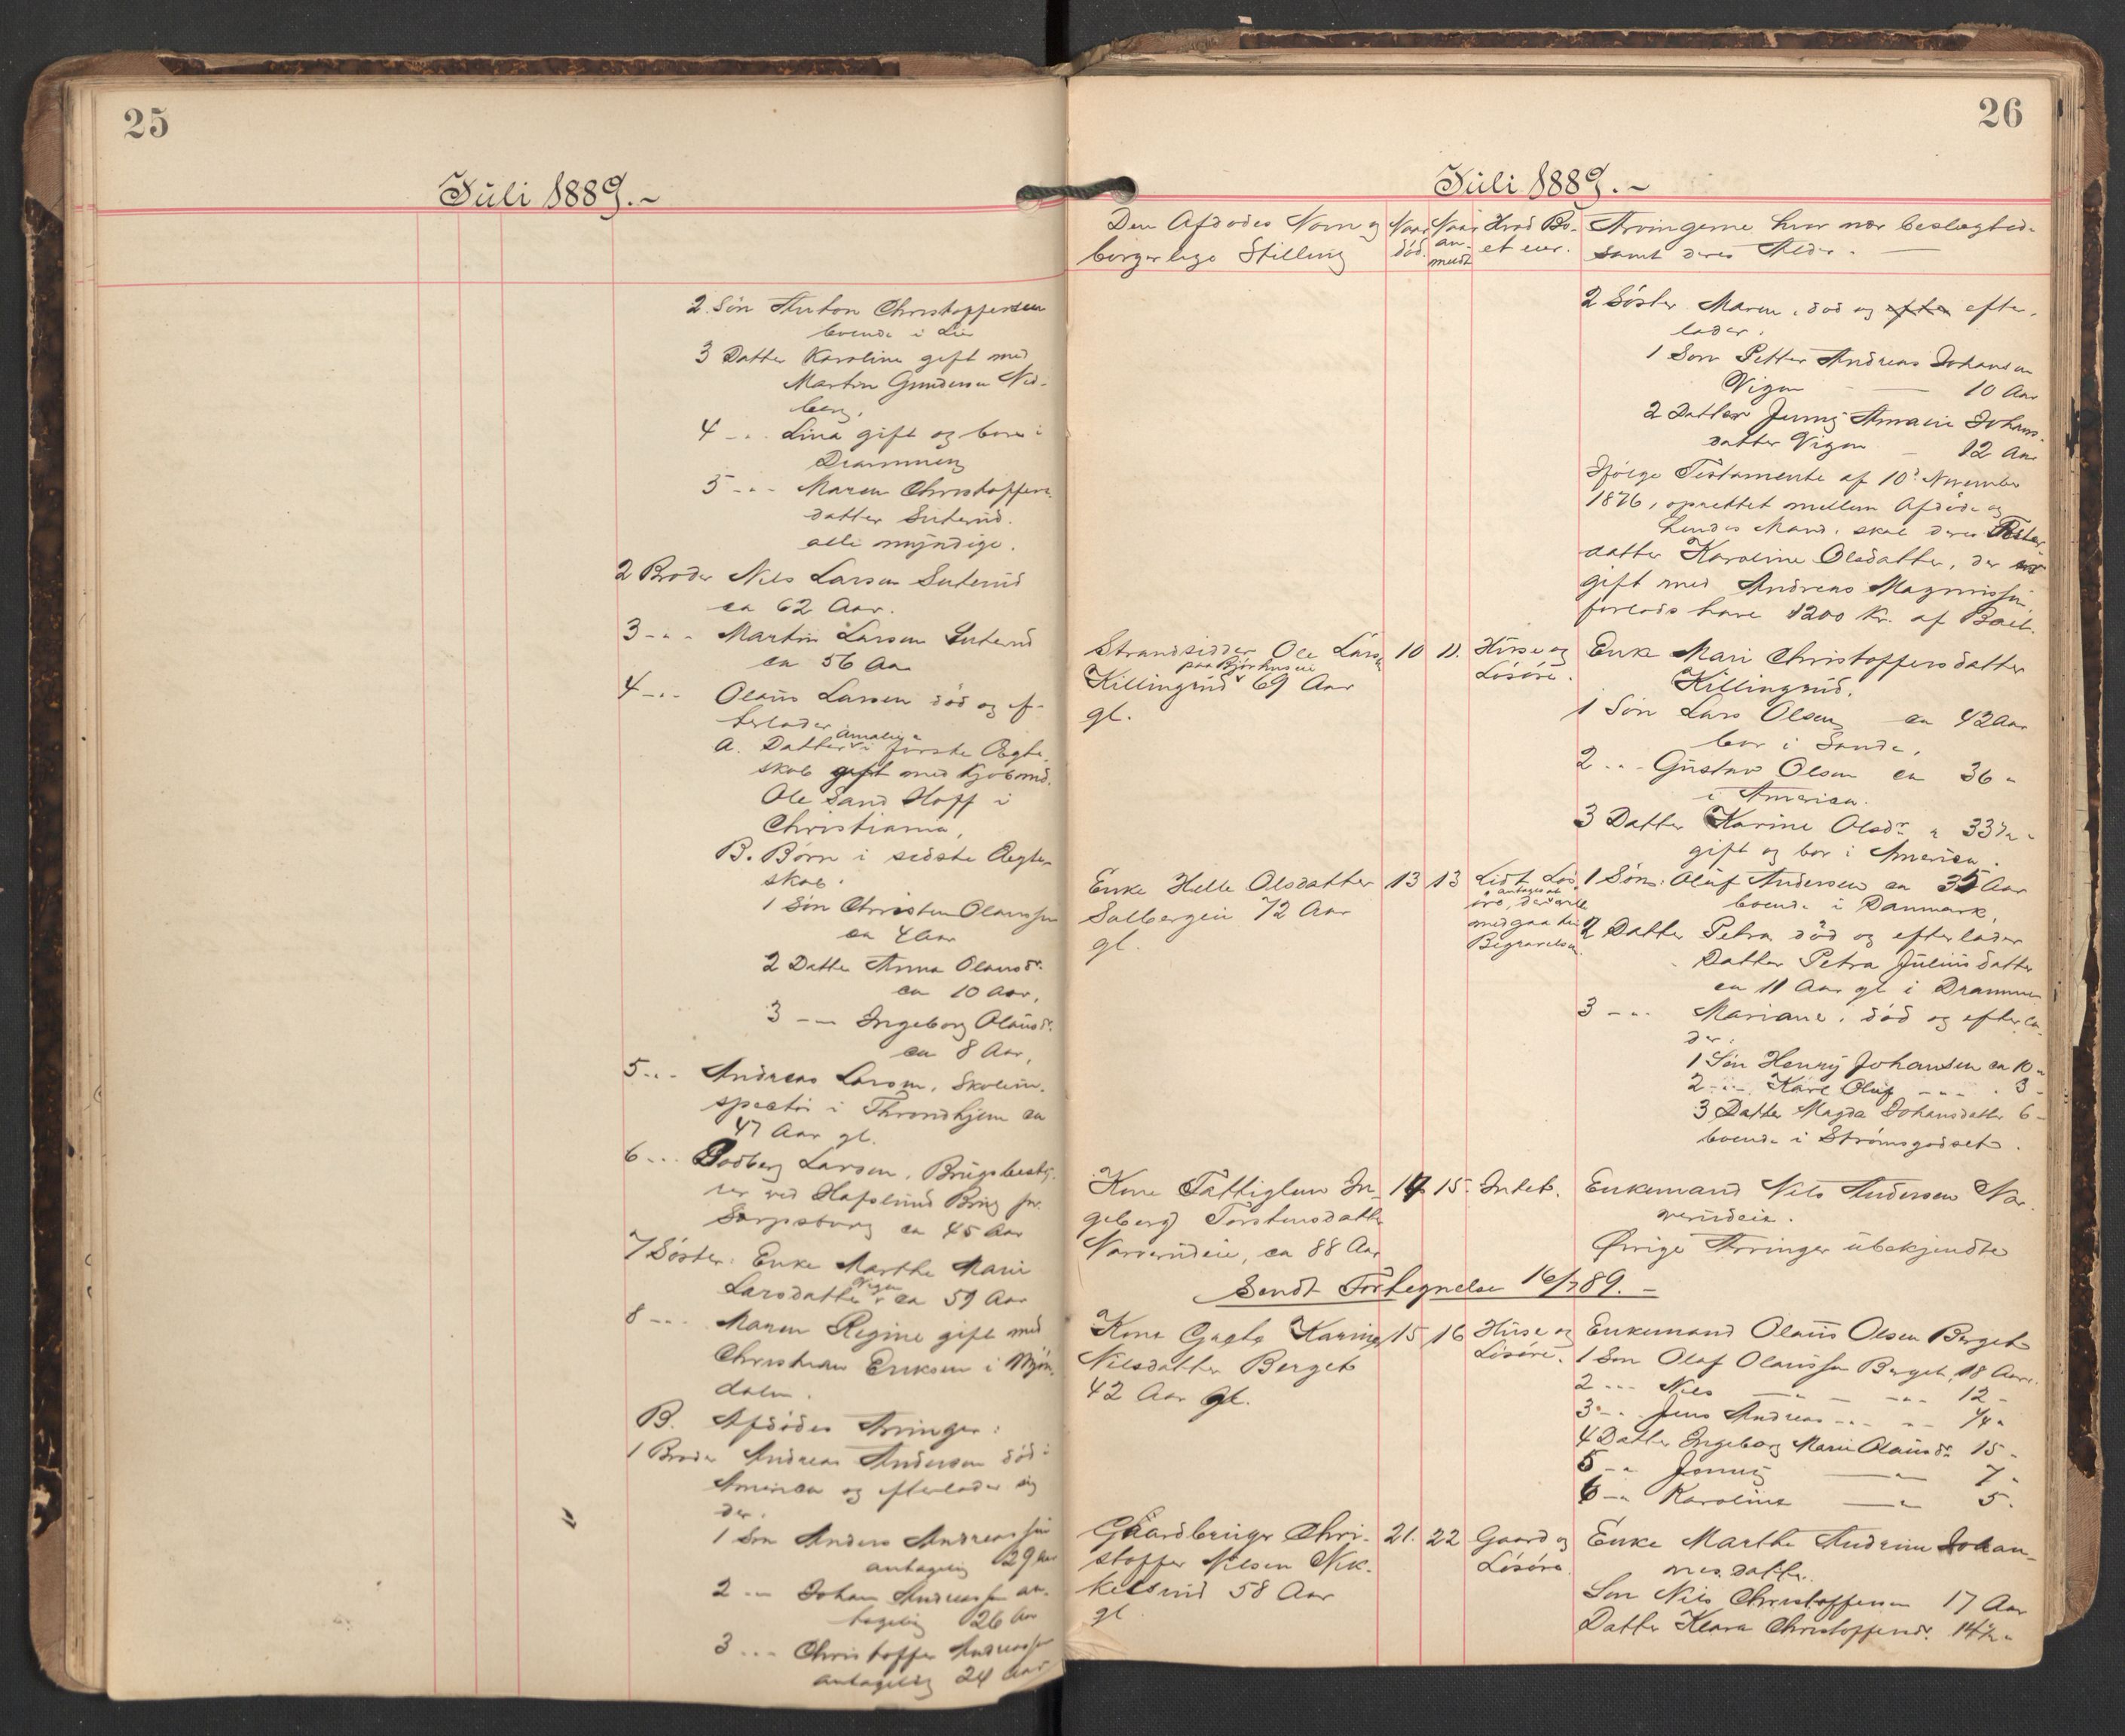 25
Juli 1889.-
2. Søn Anton Christoffersen
boende i Lie
3 Datter Karoline gift med
Martin Gundersen Ned-
berg.
4 - " - Lina gift og boer i
Drammen
5 - " - Maren Christoffers-
datter Suterud.
alle myndige.
2 Broder Nils Larsen Suterud
ca 62 Aar.
3 - " - Martin Larsen Suterud
ca 56 Aar
4 - " - Olaus Larsen død og ef-
terlader
A. Datter Amalie i første Ægte-
skab gift med Kjøbmd.
Ole Sand Hoff i
Christiania,
B. Børn i sidste Ægte-
skab.
1 Søn Christen Olaussen
ca 4 Aar
2 Datter Anna Olausdr.
ca 10 Aar,
3 - " - Ingeborg Olausdr.
ca 8 Aar,
5 - " - Andreas Larsen, Skolein-
spectør i Throndhjem ca
47 Aar gl.
6 - " - Larsen, Brugsbesty-
rer ved Hafslund Brug pr.
Sarpsborg ca 45 Aar
7 Søster: Enke Marthe Marie
Larsdatter Vigen ca 59 Aar
8 - " - Maren Regine gift med
Christian Eriksen i Mjøn-
dalen.
B. Afdødes Arvinger:
1 Broder Andreas Andersen død i
America og efterlader sig
der.
1 Søn Anders Andreassen
antagelig 29 Aar
2 - " - Johan Andreassen an-
tagelig 26 Aar
3 - " - Christoffer Andreassen
antagelig 24 Aar
26
Juli 1889.-
Den Afdødes Navn og Naar Naar Hvad Bo- Arvingerne hvor nær beslægted-
borgerlige Stilling død. an- meldt et eier. samt deres Alder.
2 Søster Maren, død og efter-
lader.
1 Søn Petter Andreas Johansen
Vigen - 10 Aar
2 Datter Jenny Amalie Johans-
datter Vigen - 12 Aar
Ifølge Testamente af 10d November
1876, oprettet mellem Afdøde og
hendes Mand, skal deres Foster
datter Karoline Olsdatter, der
gift med Andreas Magnussen,
forlods have 1200 Kr. af Boet.
Strandsidder Ole Larsen 10 11. Huse og Enke Mari Christoffersdatter
paa Bjørhuseie
Killingrud 69 Aar Løsøre. Killingrud.
gl. 1 Søn Lars Olsen ca 42 Aar
bor i Sande,
2 - " - Gustav Olsen ca 36 "
i America.
3 Datter Karine Olsdr. " 33 1/2 "
gift og bor i America.
Enke Helle Olsdatter 13 13 Lidt Løs- 1 Søn: Oluf Andersen ca 35 Aar
Solbergeie 72 Aar øre, der antages at ville boende i Danmark,
gl. medgaa til Begravelsen 2 Datter Petra død og efterlader
Datter Petra Juliusdatter
ca 11 Aar gl i Drammen
3 - " - Mariane, død og efterla-
der.
1 Søn Henry Johansen ca 10 "
2 - " - Karl Oluf - " - 3 -
3 Datter Magda Johansdatter 6 -
boende i Strømsgodset.
Kone Fattiglem In- 14 15. Intet. Enkemand Nils Andersen Nar-
geborg Torstensdatter verudeie.
Narverudeie, ca 88 Aar Øvrige Arvinger ubekjendte
Sendt Fortegnelse 16/7 89.-
Kone Gagto Karine 15 16 Huse og Enkemand Olaus Olsen Berget
Nilsdatter Berget Løsøre. 1 Søn Olaf Olaussen Berget, 18 Aar.
42 Aar gl. 2 - " - Nils - " - 12 -
3 - " - Jens Andreas - " - 1/4 "
4 Datter Ingeborg Marie Olausdr. 15 -
5 - " Jenny - " 7 -
6 - " Karoline - " 5 -
Gaardbruger Chri- 21. 22 Gaard og Enke Marthe Andrine Johan-
stoffer Nilsen Mik- Løsøre. nesdatter.
kelsrud 58 Aar Søn Nils Christoffersen 17 Aar
gl Datter Klara Christoffersdr. 14 1/2 "